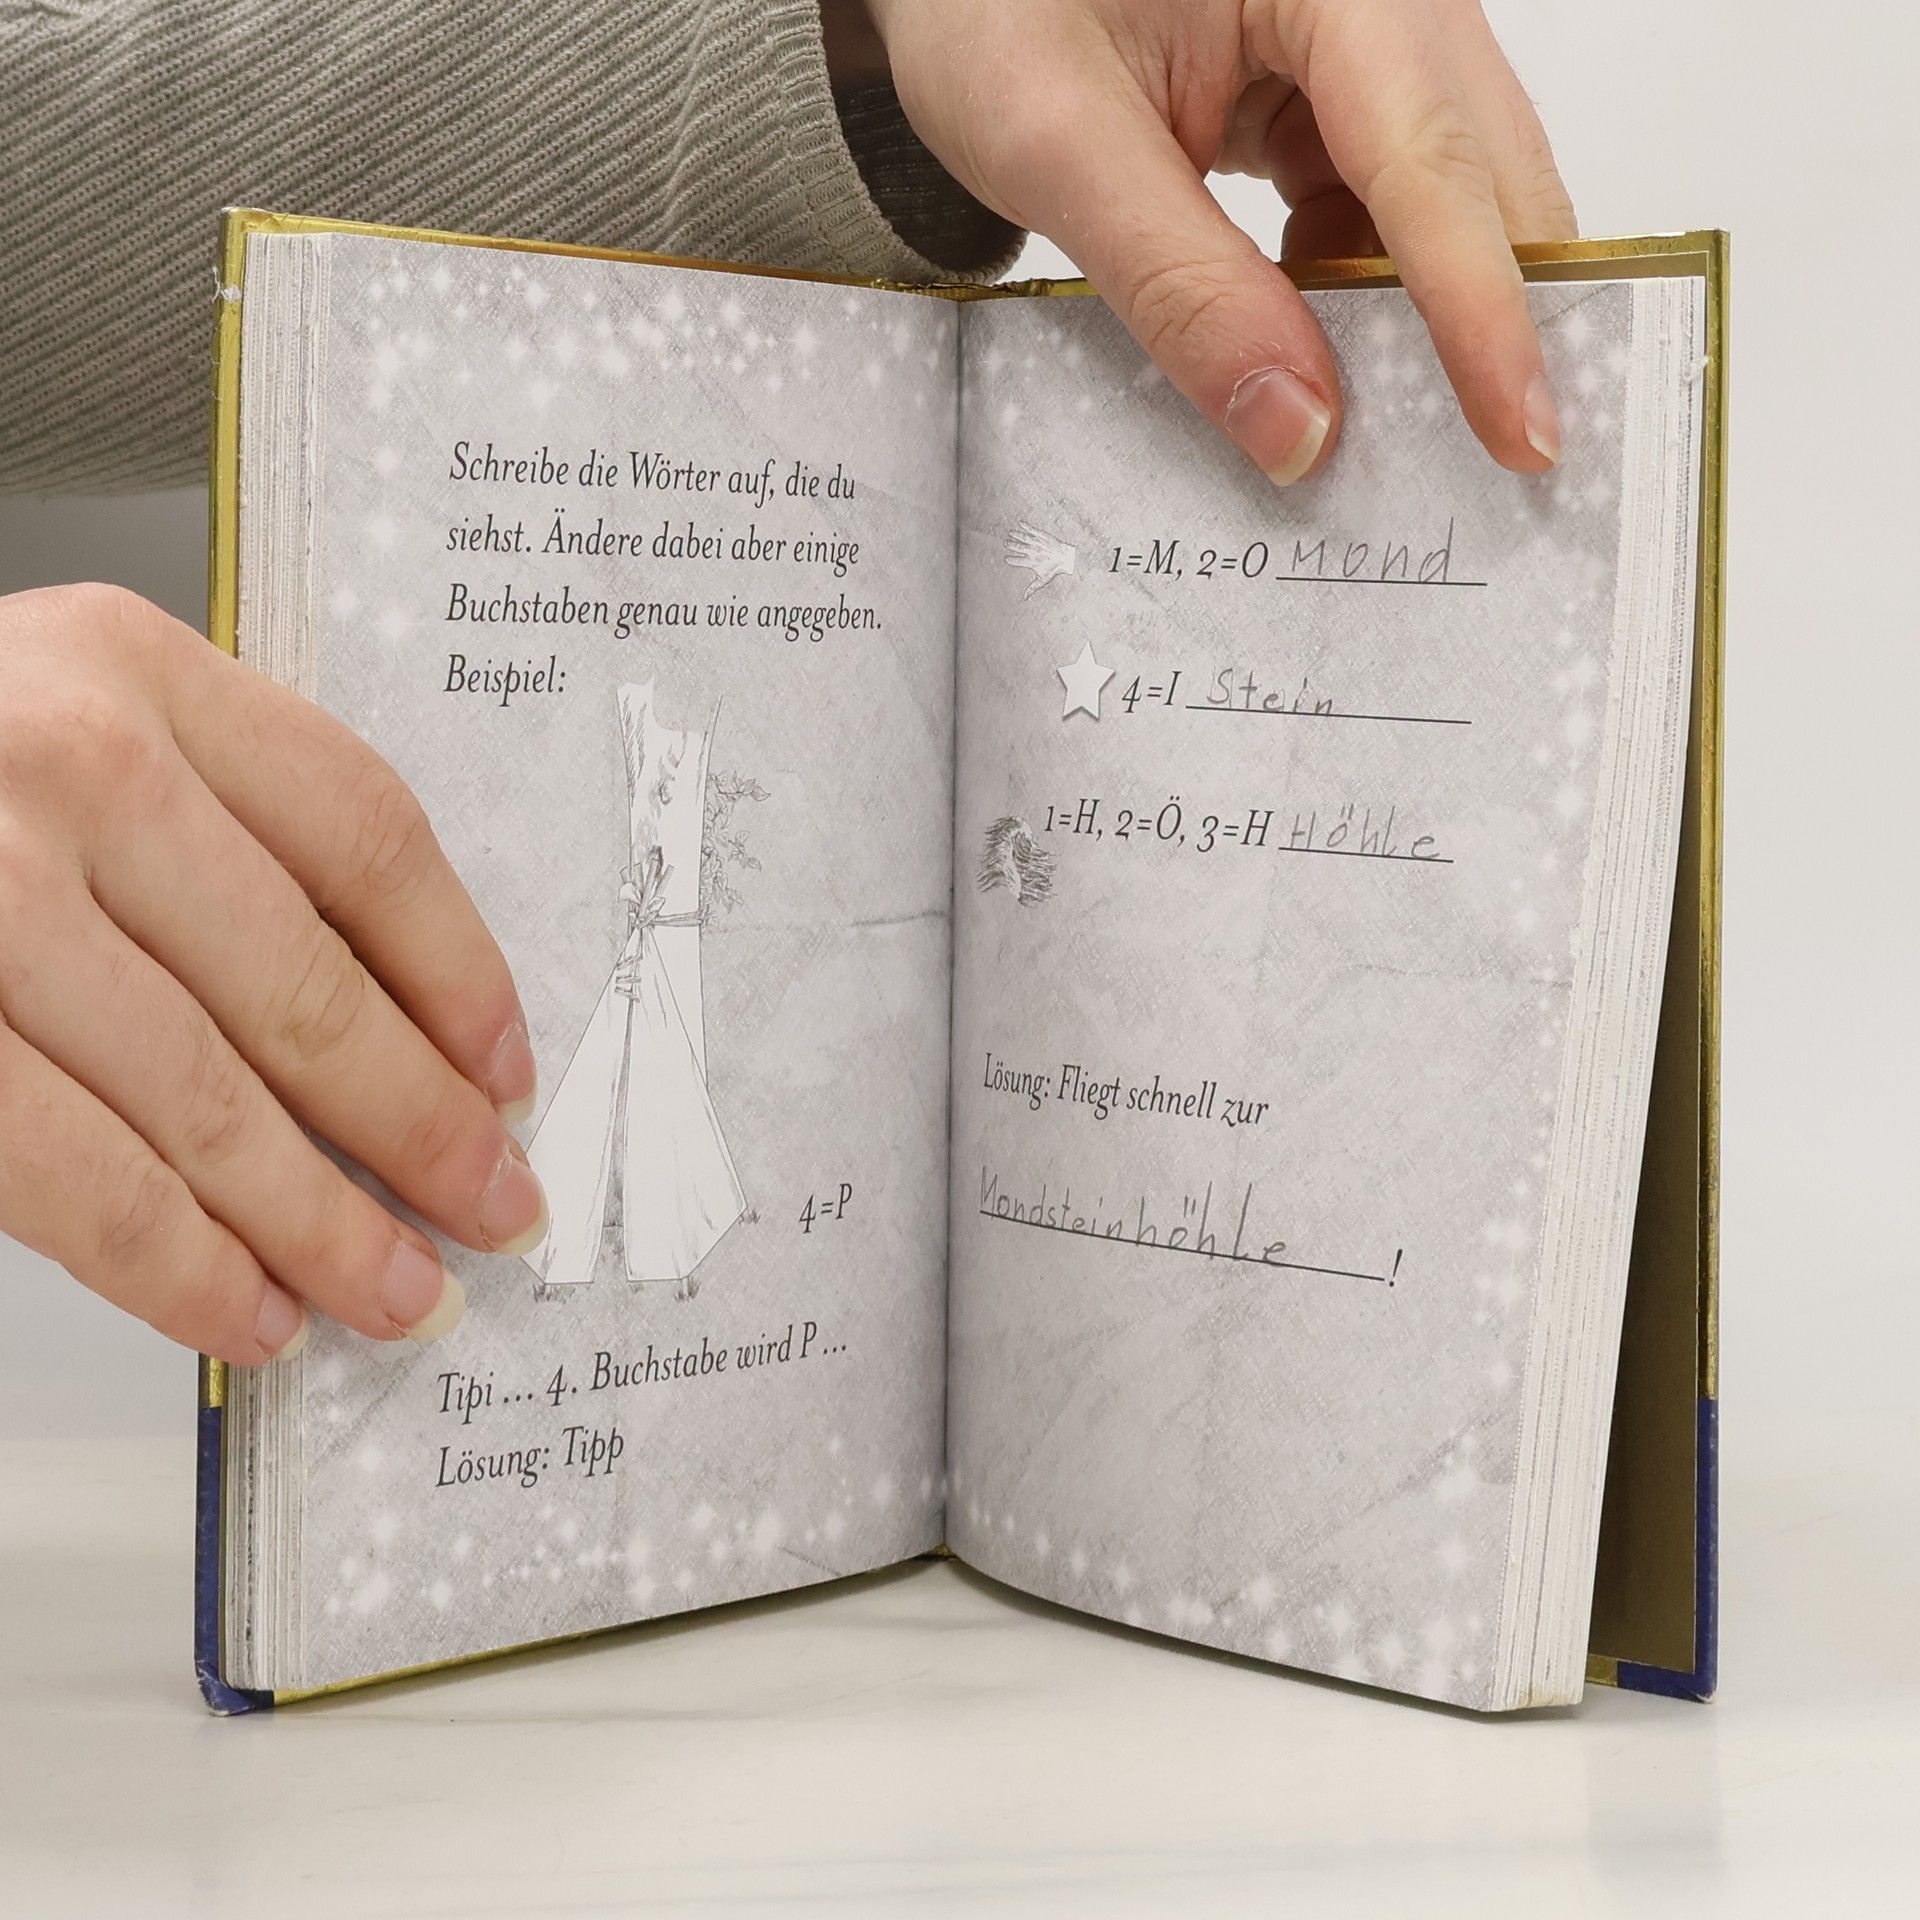 Schreibe die Wörter auf, die du
siehst. Ändere dabei aber einige
Buchstaben genau wie angegeben.
Beispiel:
4=P
Tipi ... 4. Buchstabe wird P ...
Lösung: Tipp
1=M, 2=O Mond
4=I Stein
1=H, 2=Ö, 3=H Höhle
Lösung: Fliegt schnell zur
Mondsteinhöhle!